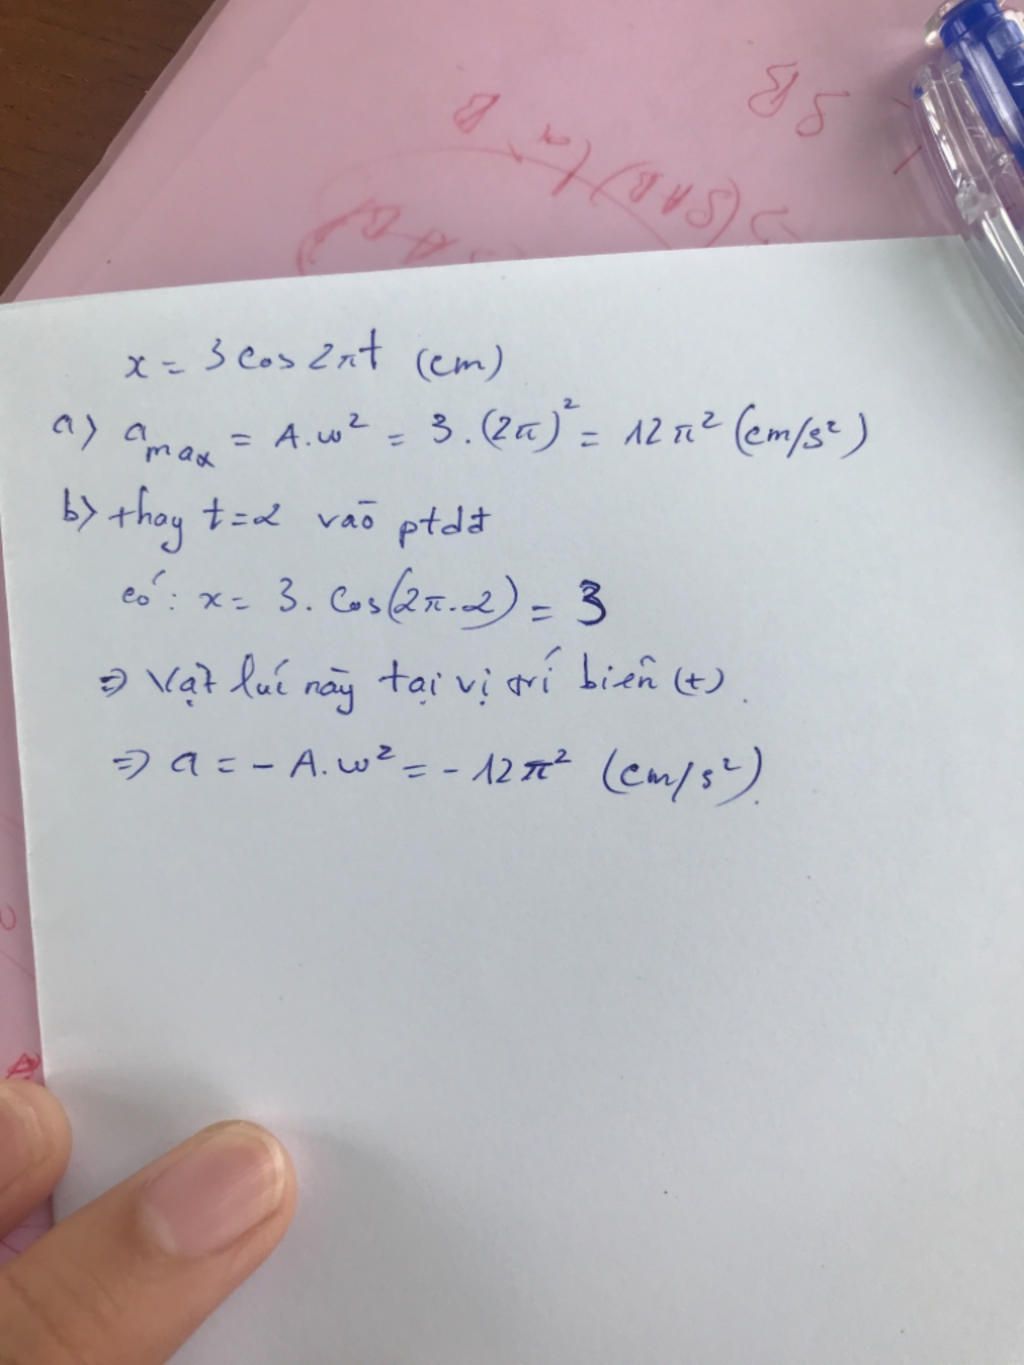 x = 3 cos 2πt (cm)
a) a max = A.ω² = 3.(2π)² = 12π² (cm/s²)
b) thay t=2 vào ptdđ
có: x = 3. cos(2π.2) = 3
=> Vật lúc này tại vị trí biên (+).
=> a = - A.ω² = - 12π² (cm/s²).